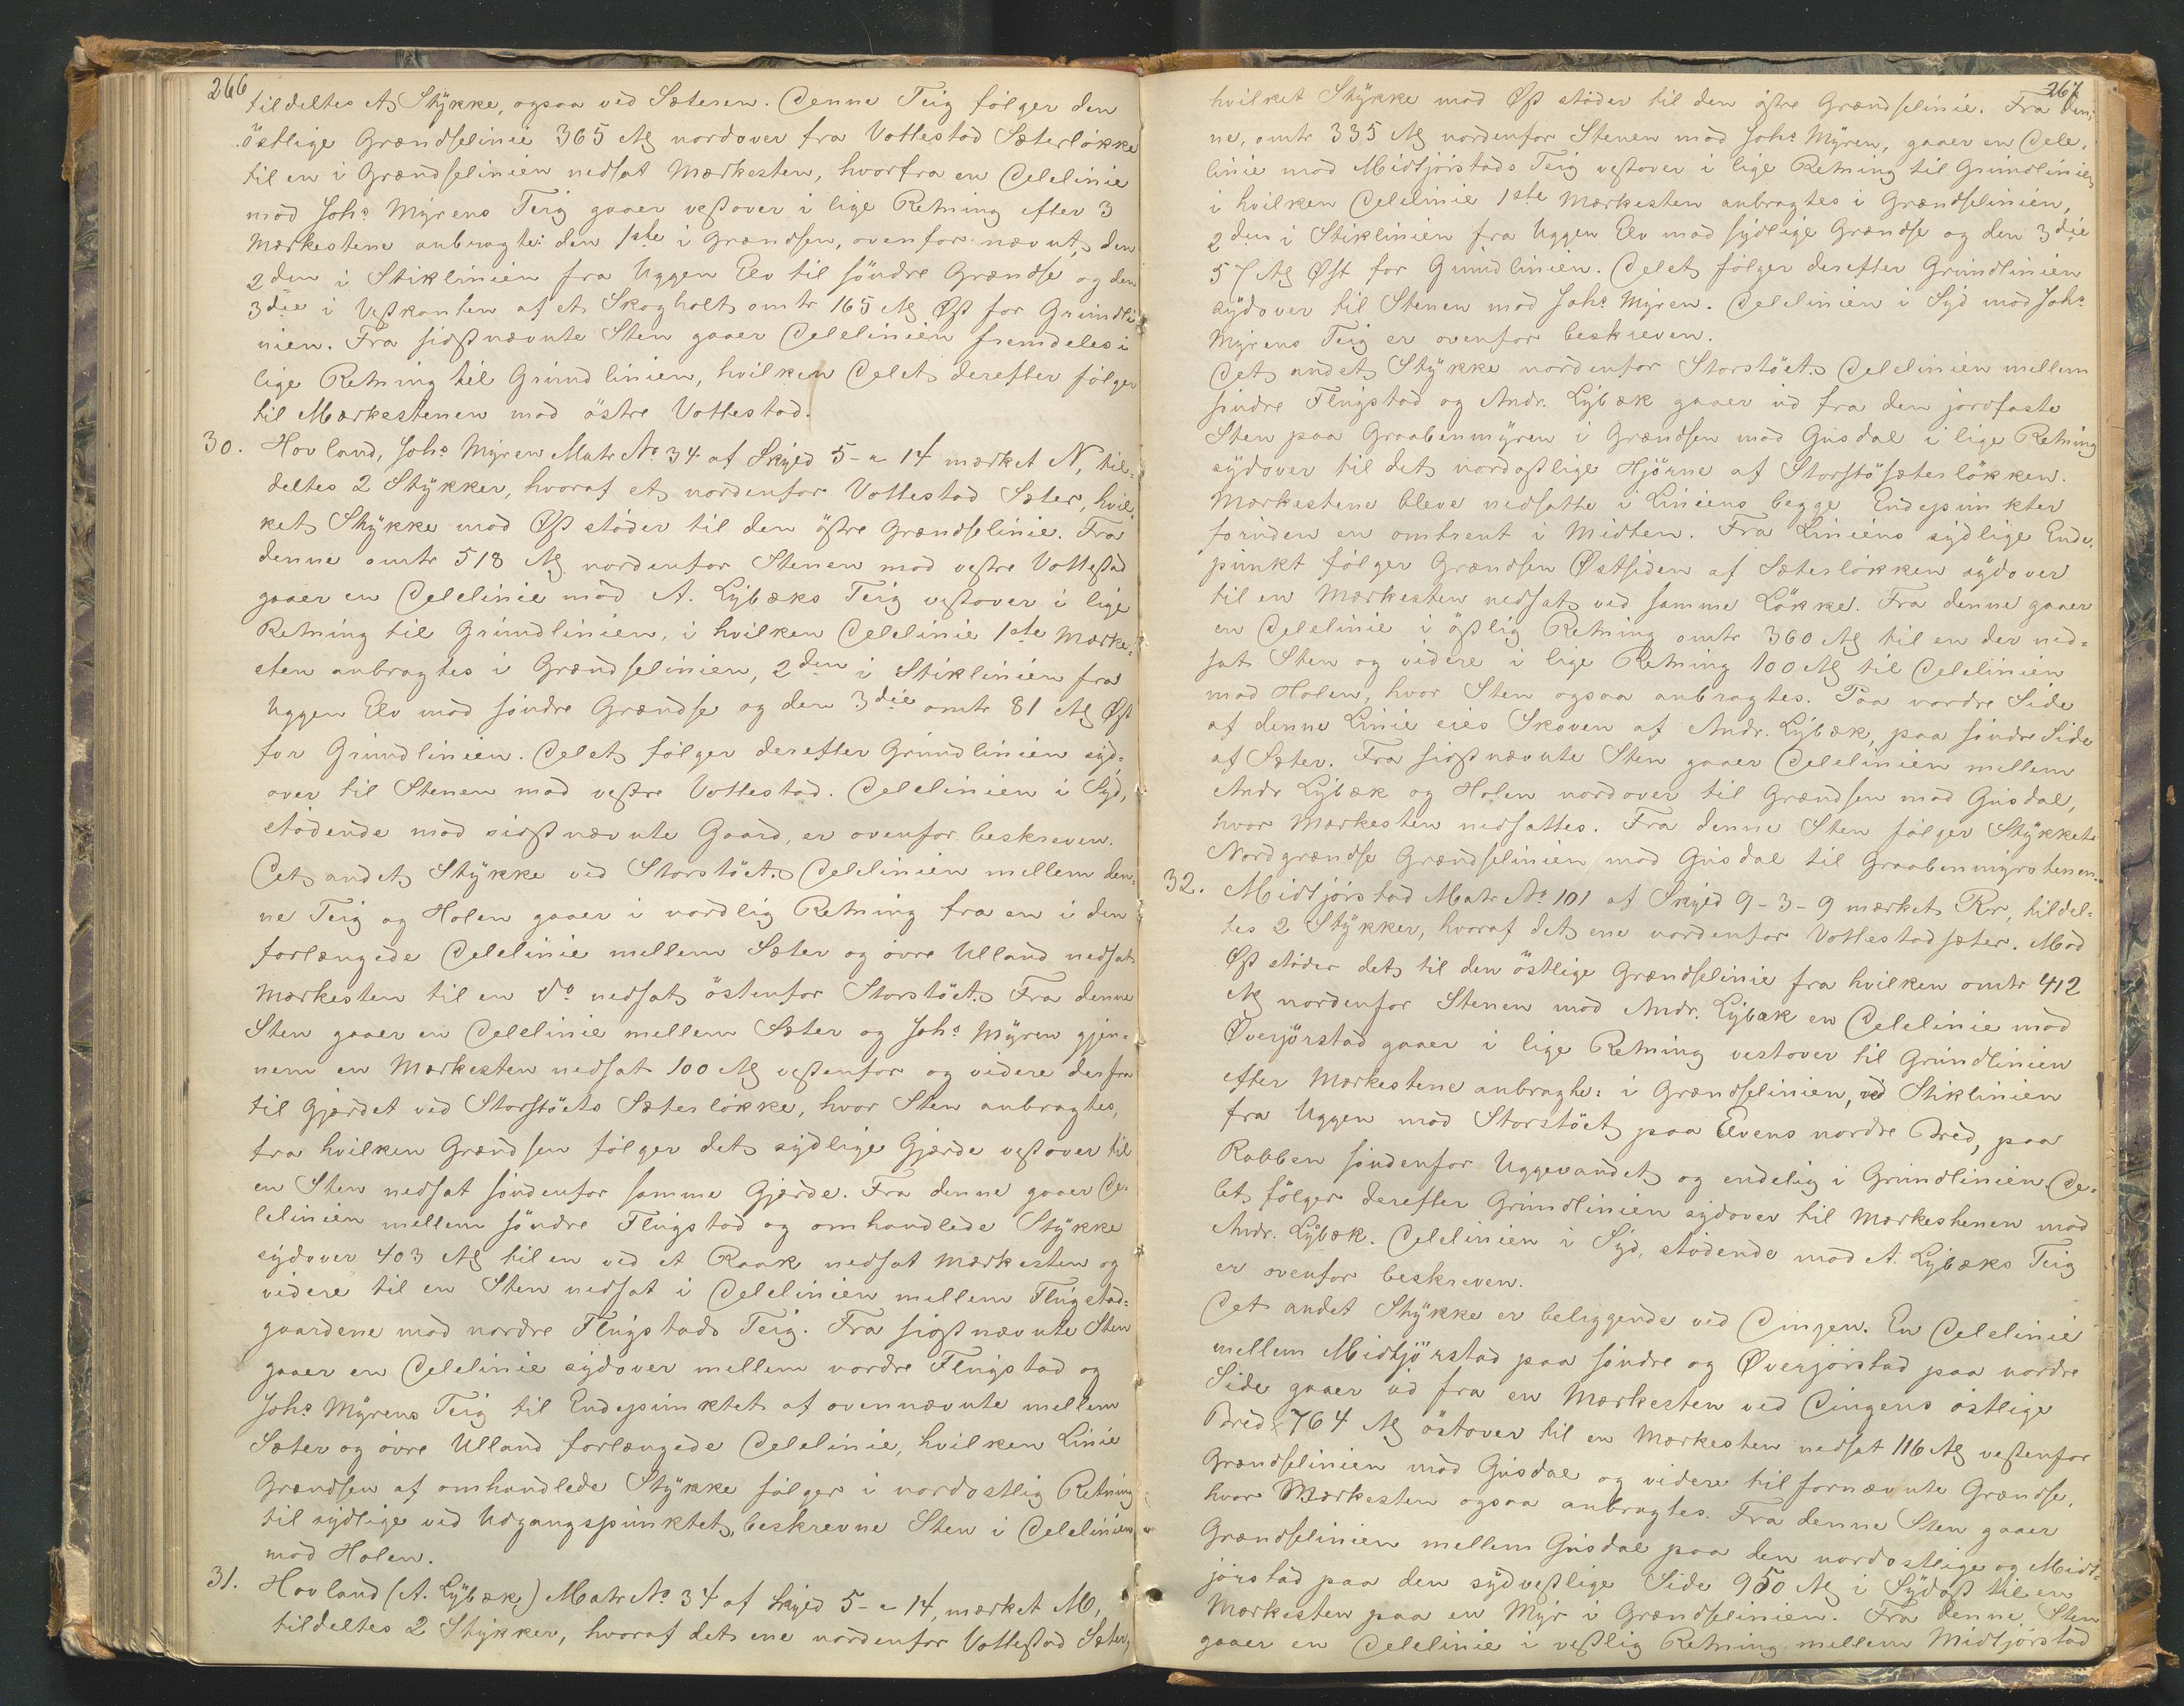 266
tildeltes et Stykke, ogsaa ved Sæteren. Denne Teig følger den
østlige Grændselinie 365 Al nordover fra Vottestad Sæterløkke
til en i Grændselinien nedsat Mærkesten, hvorfra en Delelinie
mod Johs Myrens Teig gaaer vestover i lige Retning efter 3
Mærkestene anbragte: den 1ste i Grændsen, ovenfor nævnt, den
2den i Stiklinien fra Uggen Elv til søndre Grændse og den
3die i Vestkanten af et Skogholt omtr 165 Al Øst for Grundli-
nien. Fra sidstnævnte Sten gaaer Delelinien fremdeles i
lige Retning til Grundlinien, hvilken Delet derefter følger
til Mærkestenen mod østre Vottestad.
30. Hovland, Johs Myren Matr No 34 af Skyld 5 - " 14 mærket N, til-
deltes 2 Stykker, hvoraf et nordenfor Vottestad Sæter, hvil-
ket Stykke mod Øst støder til den østre Grændselinie. Fra
denne omtr 518 Al nordenfor Stenen mod vestre Vottestad
gaaer en Delelinie mod A. Lybæks Teig vestover i lige
Retning til Grundlinien, i hvilken Delelinie 1ste Mærke-
sten anbragtes i Grændselinien, 2den i Stiklinien fra
Uggen Elv mod søndre Grændse og den 3die omtr 81 Al Øst
for Grundlinien. Delet følger derefter Grundlinien syd-
over til Stenen mod vestre Vottestad. Delelinien i Syd,
stødende mod sidstnævnte Gaard, er ovenfor beskreven.
Det andet Stykke ved Storstøet. Delelinien mellem den-
ne Teig og Holen gaaer i nordlig Retning fra en i den
forlængede Delelinie mellem Sæter og øvre Ulland nedsat
Mærkesten til en do nedsat østenfor Storstøet. Fra denne
Sten gaaer en Delelinie mellem Sæter og Johs Myren gjen-
nem en Mærkesten nedsat 100 Al vestenfor og videre derfra
til Gjærdet ved Storstøets Sæterløkke, hvor Sten anbragtes,
fra hvilken Grændsen følger det sydlige Gjærde vestover til
en Sten nedsat søndenfor samme Gjærde. Fra denne gaaer De-
lelinien mellem søndre Flugstad og omhandlede Stykke
sydover 403 Al til en ved et Raak nedsat Mærkesten og
videre til en Sten nedsat i Delelinien mellem Flugstad-
gaardene mod nordre Flugstads Teig. Fra sidstnævnte Sten
gaaer en Delelinie sydover mellem nordre Flugstad og
Johs Myrens Teig til Endepunktet af ovennævnte mellem
Sæter og øvre Ulland forlængede Delelinie, hvilken Linie
Grændsen af omhandlede Stykke følger i nordostlig Retning
til sydlige ved Udgangspunktet, beskrevne Sten i Delelinien
mod Holen.
31. Hovland (A. Lybæk) Matr No 34 af Skyld 5 - " 14, mærket M,
tildeltes 2 Stykker, hvoraf det ene nordenfor Vottestad Sæter,
267
hvilket Stykke mod Øst støder til den østre Grændselinie. Fra den-
ne, omtr 335 Al nordenfor Stenen mod Johs Myren, gaaer en Dele-
linie mod Midtjørstads Teig vestover i lige Retning til Grundlinien,
i hvilken Delelinie 1ste Mærkesten anbragtes i Grændselinien,
2den i Stiklinien fra Uggen Elv mod sydlige Grændse og den 3die
57 Al Øst for Grundlinien. Delet følger derefter Grundlinien
sydover til Stenen mod Johs Myren. Delelinien i Syd mod Johs
Myrens Teig er ovenfor beskreven.
Det andet Stykke nordenfor Storstøet. Delelinien mellem
søndre Flugstad og Andr. Lybæk gaaer ud fra den jordfaste
Sten paa Graabenmyren i Grændsen mod Gusdal i lige Retning
sydover til det nordostlige Hjørne af Storstøsæterløkken.
Mærkestene bleve nedsatte i Liniens begge Endepunkter
foruden en omtrent i Midten. Fra Liniens sydlige Ende-
punkt følger Grændsen Østsiden af Sæterløkken sydover
til en Mærkesten nedsat ved samme Løkke. Fra denne gaaer
en Delelinie i østlig Retning omtr 360 Al til en der ned-
sat Sten og videre i lige Retning 100 Al til Delelinien
mod Holen, hvor Sten ogsaa anbragtes. Paa nordre Side
af denne Linie eies Skoven af Andr. Lybæk, paa søndre Side
af Sæter. Fra sidstnævnte Sten gaaer Delelinien mellem
Andr Lybæk og Holen nordover til Grændsen mod Gusdal,
hvor Mærkesten nedsattes. Fra denne Sten følger Stykkets
Nordgrændse Grændselinien mod Gusdal til Graabenmyrstenen.
32. Midtjørstad Matr No 101 af Skyld 9 - 3 - 9 mærket Rr, tildel-
tes 2 Stykker, hvoraf det ene nordenfor Vottestadsæter. Mod
Øst støder det til den østlige Grændselinie fra hvilken omtr 412
Al nordenfor Stenen mod Andr. Lybæk en Delelinie mod
Øverjørstad gaaer i lige Retning vestover til Grundlinien
efter Mærkestene anbragte: i Grændselinien, ved Stiklinien
fra Uggen mod Storstøet paa Elvens nordre Bred, paa
Rabben søndenfor Uggevandet og endelig i Grundlinien. De-
let følger derefter Grundlinien sydover til Mærkestenen mod
Andr. Lybæk. Delelinien i Syd, stødende mod A. Lybæks Teig
er ovenfor beskreven.
Det andet Stykke er beliggende ved Dingen. En Delelinie
mellem Midtjørstad paa søndre og Øverjørstad paa nordre
Side gaaer ud fra en Mærkesten ved Dingens østlige
Bred 764 Al østover til en Mærkesten nedsat 116 Al vestenfor
Grændselinien mod Gusdal og videre til fornævnte Grændse,
hvor Mærkesten ogsaa anbragtes. Fra denne Sten gaaer
Grændselinien mellem Gusdal paa den nordostlige og Midt-
jørstad paa den sydvestlige Side 950 Al i Sydost til en
Mærkesten paa en Myr i Grændselinien. Fra denne Sten
gaaer en Delelinie i vestlig Retning mellem Midtjørstad